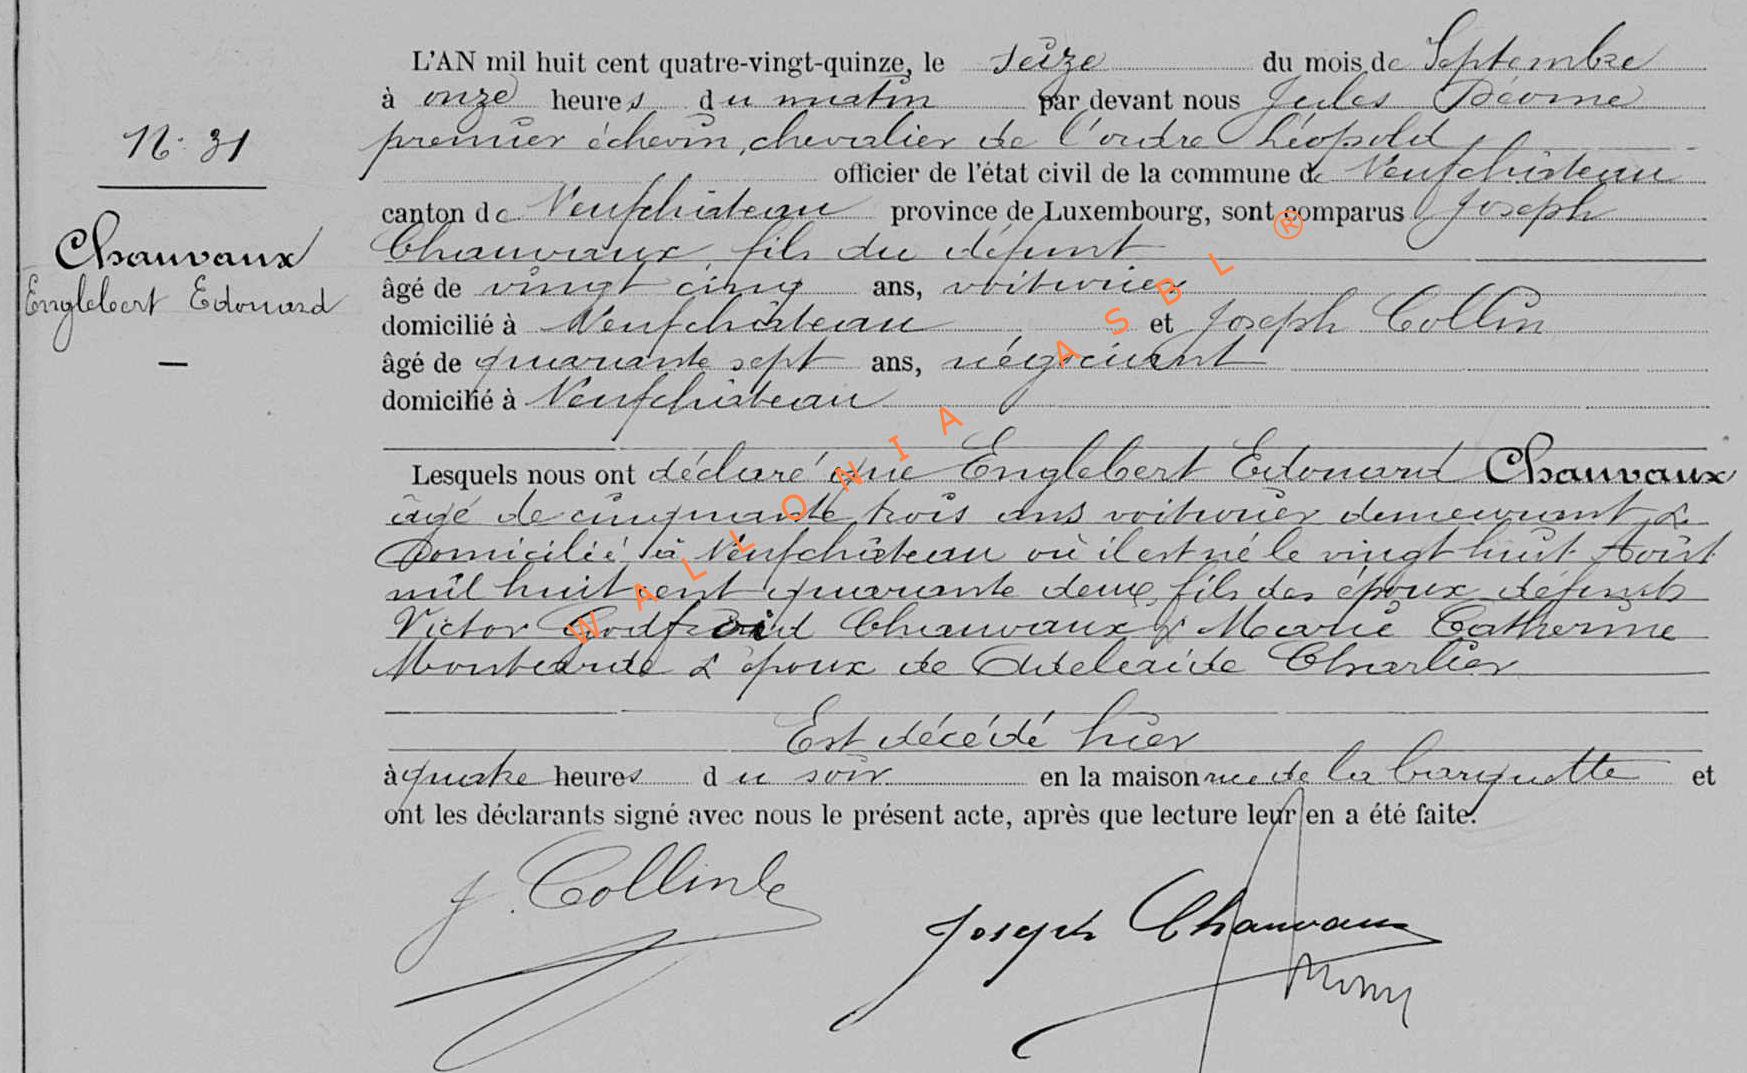 L'AN mil huit cent quatre-vingt-quinze, le seize du mois de Septembre
à onze heures du matin par devant nous Jules
premier échevin, chevalier de l'ordre Léopold
officier de l'état civil de la commune de Neufchâteau
N° 31
canton de Neufchâteau province de Luxembourg, sont comparus Joseph
Chauvaux, fils du défunt
Chauvaux
Englebert Edouard
âgé de vingt cinq ans, voiturier
domicilié à Neufchâteau et Joseph Collin
âgé de quarante sept ans, négociant
domicilié à Neufchâteau
Lesquels nous ont déclaré que Englebert Edouard Chauvaux
âgé de cinquante trois ans voiturier demeurant &
Domicilié à Neufchâteau où il est né le vingt huit Août
mil huit cent quarante deux, fils des époux défunts
Victor Chauvaux & Marie Catherine
& époux de Adelaïde Charlier
Est décédé hier
à quatre heures du soir en la maison rue de la barquette et
ont les déclarants signé avec nous le présent acte, après que lecture leur en a été faite.
J. Collin
Joseph Chauvaux
WALLONIA ASBL ®